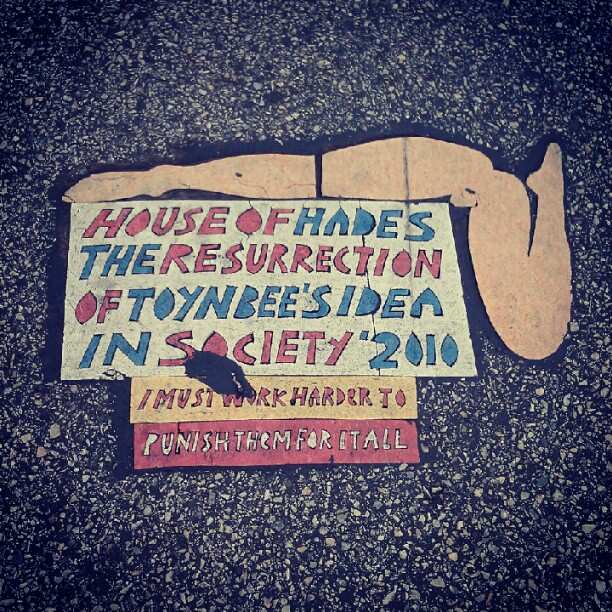 HOUSE OF HADES
THE RESURRECTION
OF TOYNBEE'S IDEA
IN SOCIETY '2010
I MUST WORK HARDER TO
PUNISH THEM FOR IT ALL